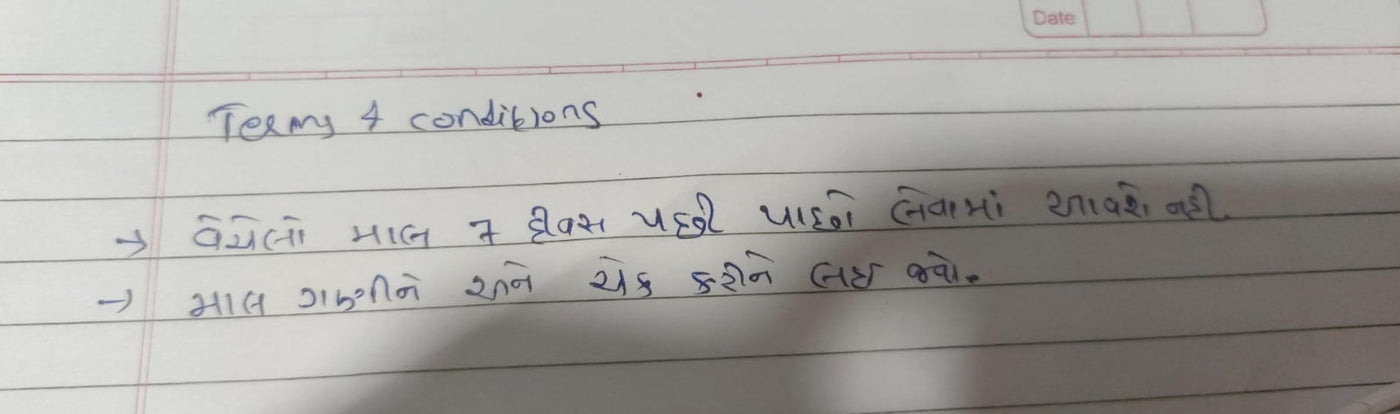 Date
Terms & conditions
→ વેચેલો માલ 7 દીવસ પછી પાછો લેવામાં આવશે નહી.
→ માલ ગણીને અને ચેક કરીને લઇ જવો.